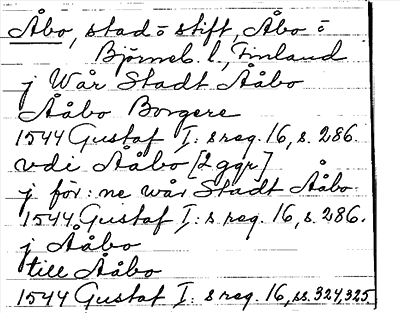 Åbo, stad o stift, Åbo o
Björneb. l., Finland
j Wår Stadt Ååbo
Ååbo Borgere
1544 Gustaf I:s reg. 16, s. 286.
vdi Ååbo [2 ggr]
j för:ne wår Stadt Ååbo.
1544 Gustaf I:s reg. 16, s. 286.
j Ååbo
till Ååbo
1544 Gustaf I:s reg. 16, ss. 324, 325